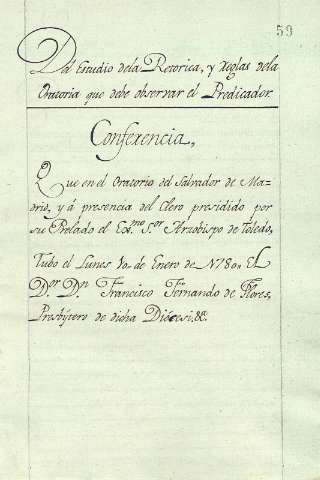 59
Del Estudio dela Retorica, y Reglas dela
Oratoria que debe observar el Predicador.
Conferencia,
Que en el Oratorio del Salvador de Ma=
drid, y á presencia del Clero presidido por
su Prelado el Ex.mo S.or Arzobispo de Toledo,
Tubo el Lunes de Enero de El
D.or D.n Francisco Fernando de Flores,
Presbytero de dicha Diócesi, &c.